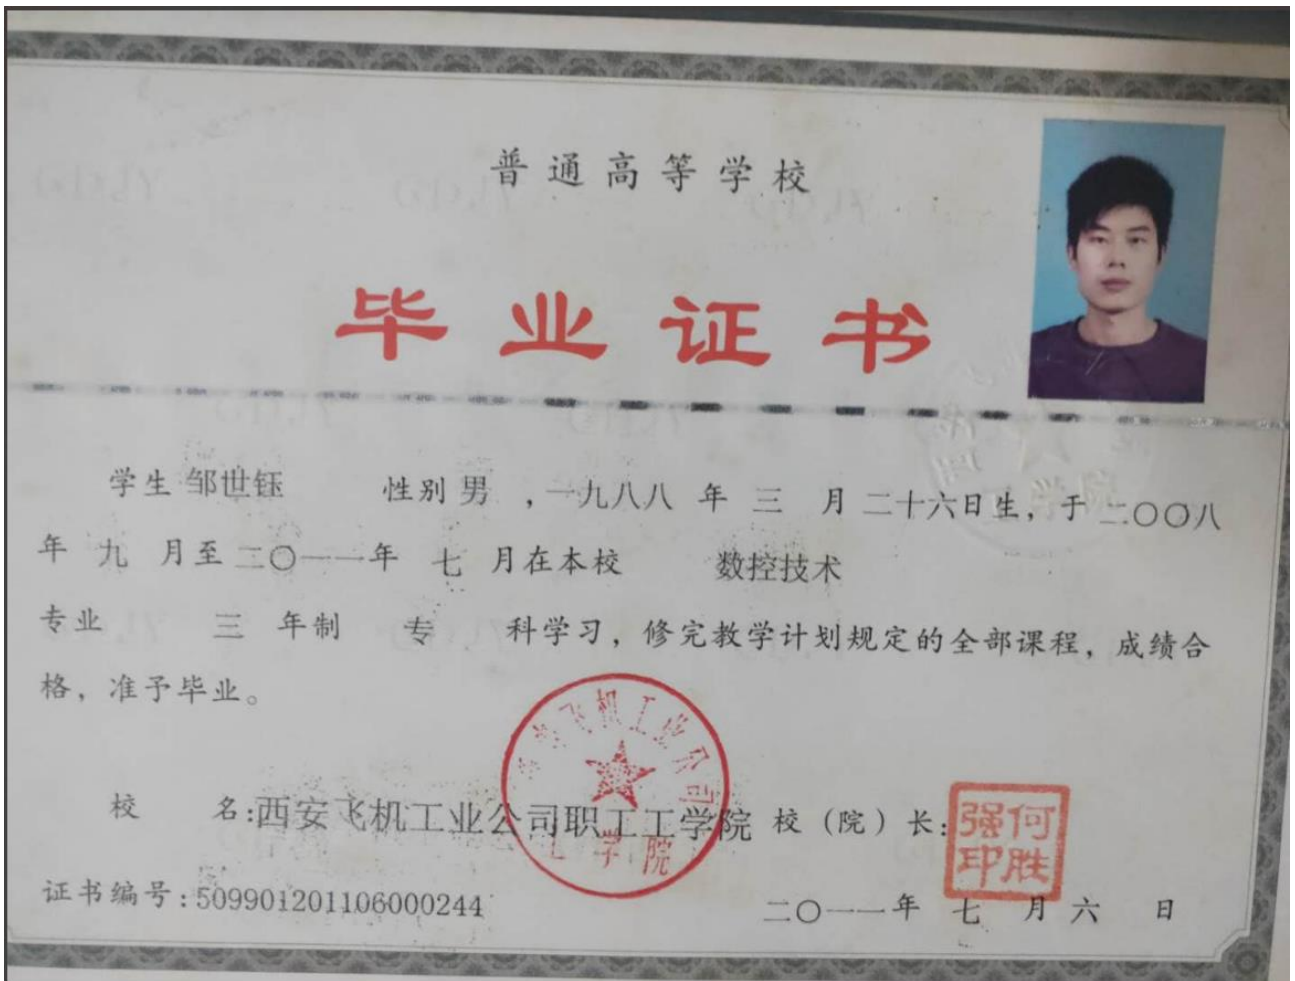 普通高等学校
毕业证书
学生 邹世钰 性别 男 ，一九八八 年 三 月 二十六日生，于 二〇〇八
年 九 月至 二〇一一年 七 月在本校 数控技术
专业 三 年制 专 科学习，修完教学计划规定的全部课程，成绩合
格，准予毕业。
校 名:西安飞机工业公司职工工学院 校（院）长:
何胜强印
证书编号:509901201106000244
二〇一一年 七 月 六 日